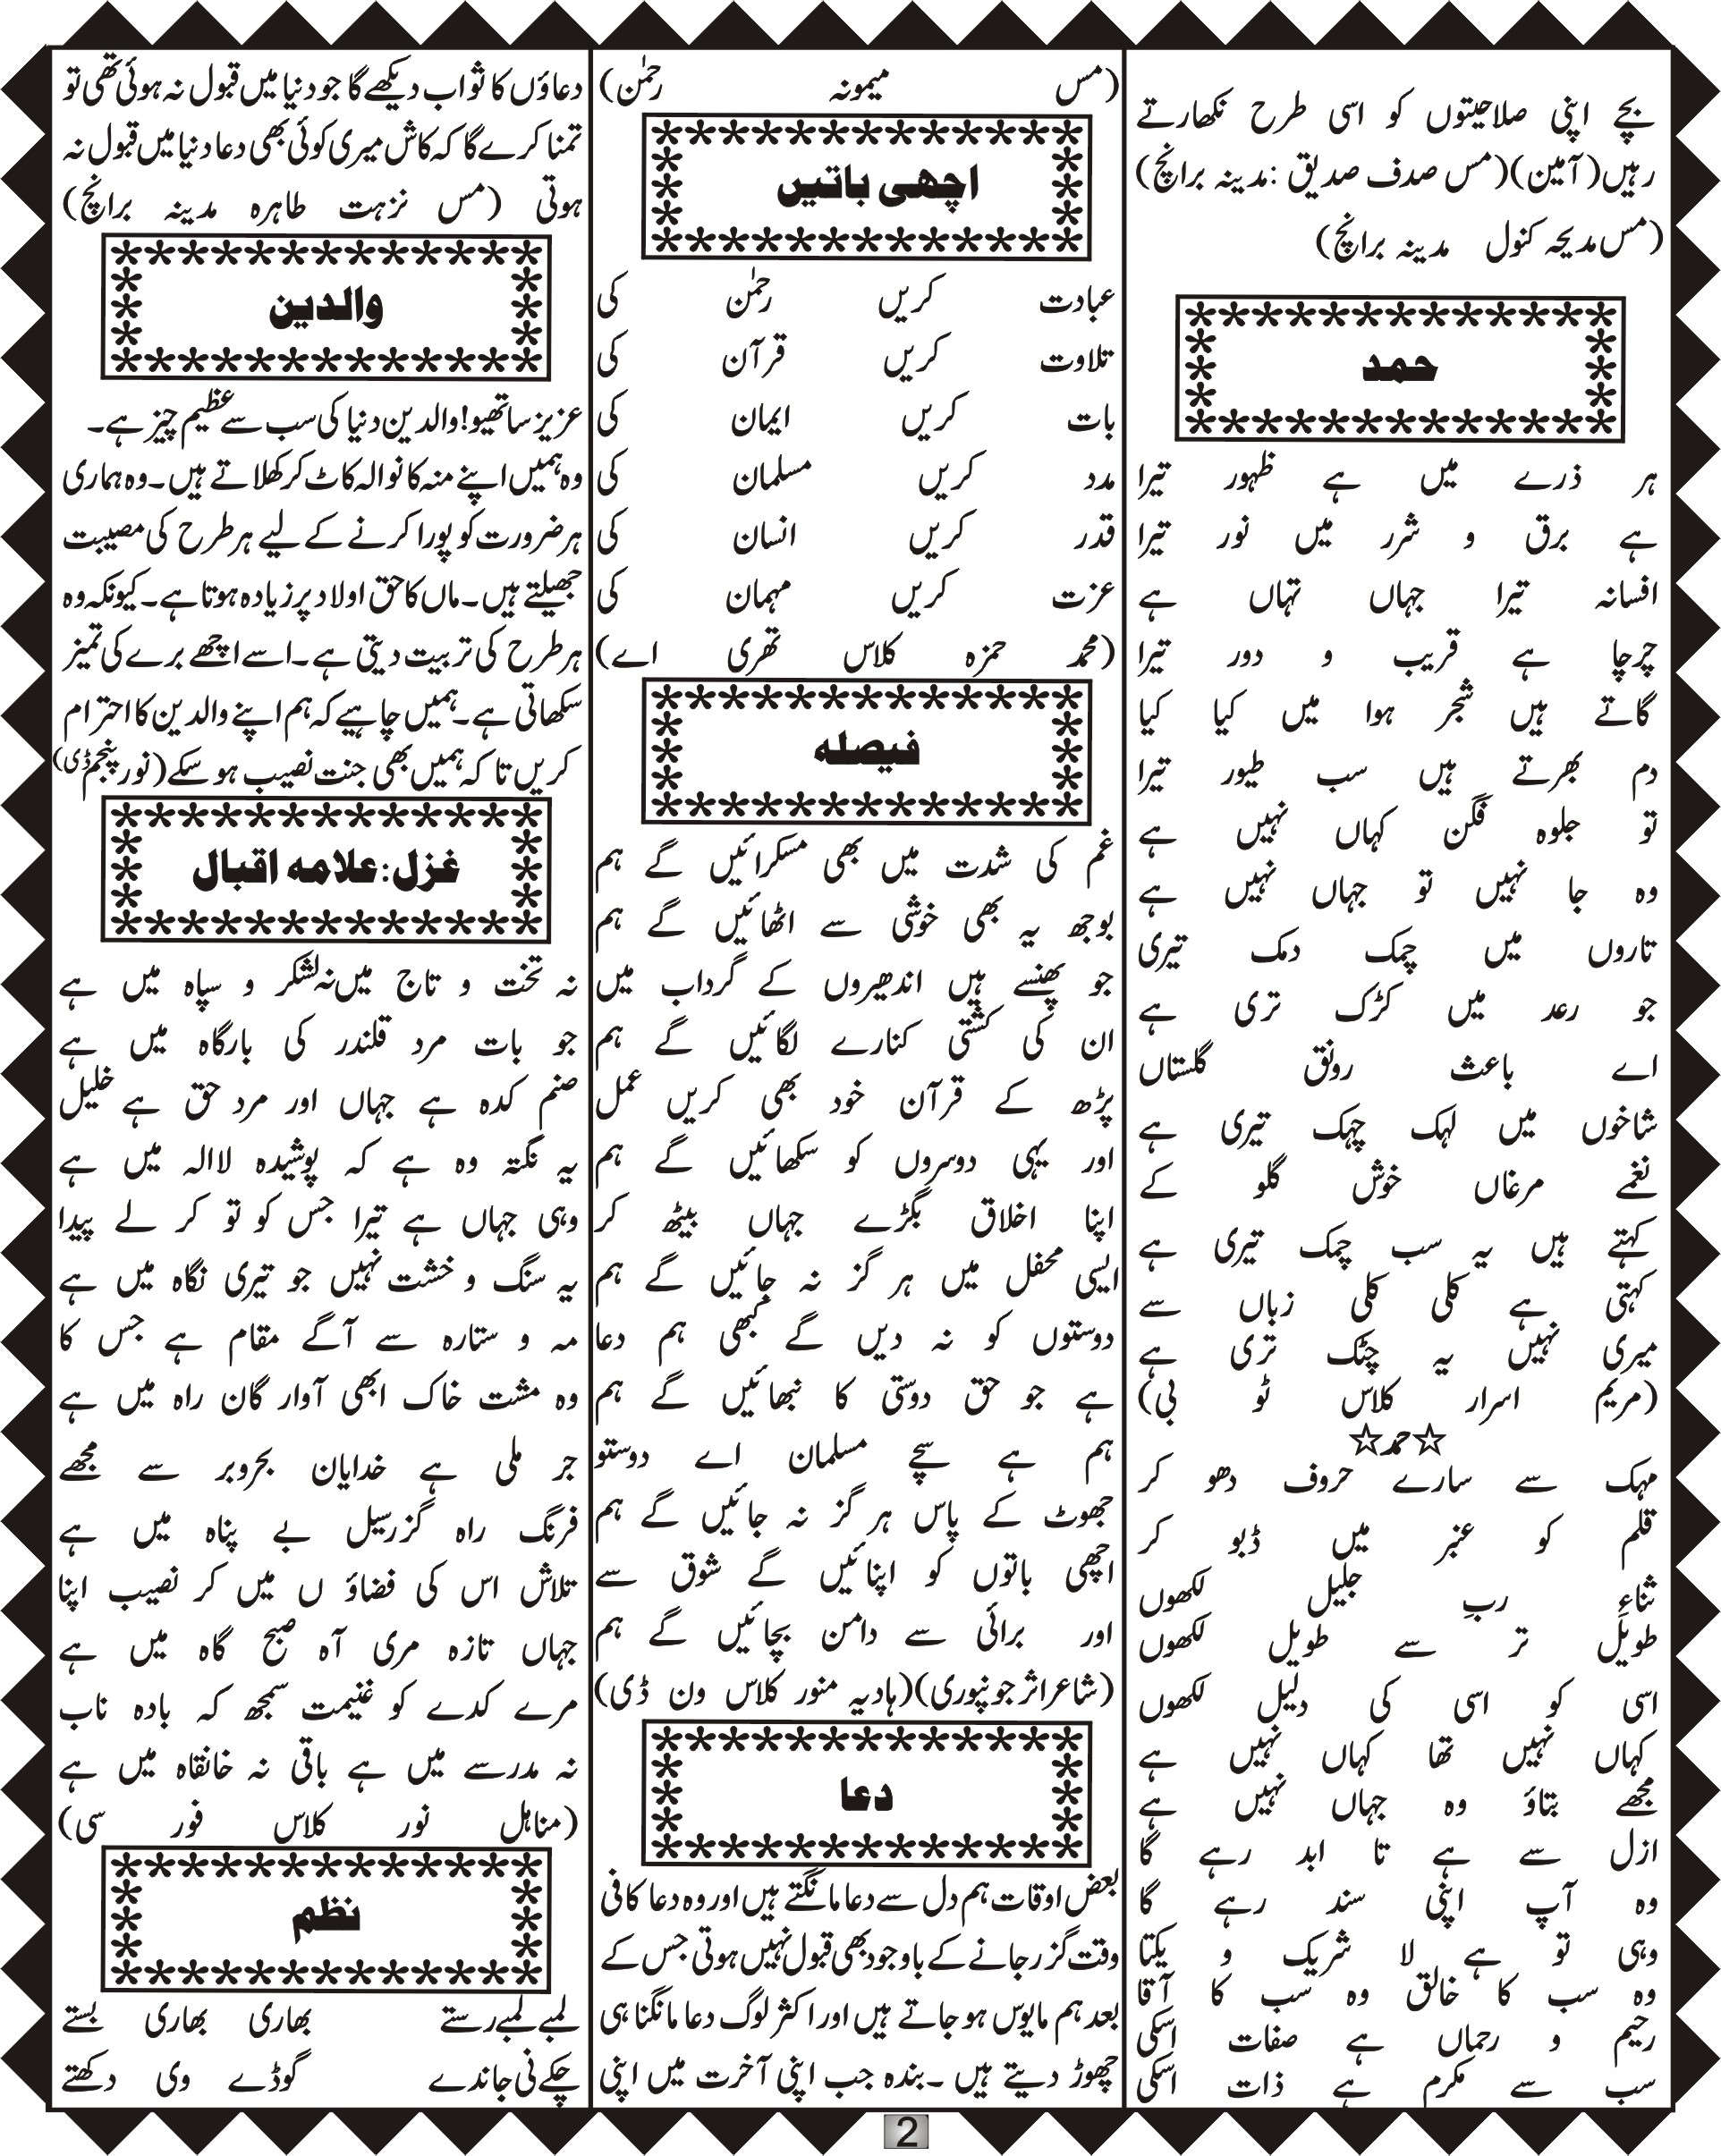 بچے اپنی صلاحیتوں کو اسی طرح نکھارتے
رہیں(آمین)(مس صدف صدیق :مدینہ برانچ)
(مس مدیحہ کنول مدینہ برانچ)
حمد
ہر ذرے میں ہے ظہور تیرا
ہے برق و شرر میں نور تیرا
افسانہ تیرا جہاں تہاں ہے
چرچا ہے قریب و دور تیرا
گاتے ہیں شجر ہوا میں کیا کیا
دم بھرتے ہیں سب طیور تیرا
تو جلوہ فگن کہاں نہیں ہے
وہ جا نہیں تو جہاں نہیں ہے
تاروں میں چمک دمک تیری
جو رعد میں کڑک تری ہے
اے باعث رونق گلستاں
شاخوں میں لہک چہک تیری ہے
نغمے مرغاں خوش گلو کے
کہتے ہیں یہ سب چمک تیری ہے
کہتی ہے کلی کلی زباں سے
میری نہیں یہ چٹک تری ہے
(مریم اسرار کلاس ٹو بی)
☆حمد☆
مہک سے سارے حروف دھو کر
قلم کو عنبر میں ڈبو کر
ثناءِ ربِ جلیل لکھوں
طویل تر سے طویل لکھوں
اسی کو اسی کی دلیل لکھوں
کہاں نہیں تھا کہاں نہیں ہے
مجھے بتاؤ وہ جہاں نہیں ہے
ازل سے ہے تا ابد رہے گا
وہ آپ اپنی سند رہے گا
وہی تو ہے لا شریک و یکتا
وہ سب کا خالق وہ سب کا آقا
رحیم و رحماں ہے صفات اسکی
سب سے مکرم ہے ذات اسکی
(مس میمونہ رحمٰن)
اچھی باتیں
عبادت کریں رحمٰن کی
تلاوت کریں قرآن کی
بات کریں ایمان کی
مدد کریں مسلمان کی
قدر کریں انسان کی
عزت کریں مہمان کی
(محمد حمزہ کلاس تھری اے)
فیصلہ
غم کی شدت میں بھی مسکرائیں گے ہم
بوجھ یہ بھی خوشی سے اٹھائیں گے ہم
جو پھنسے ہیں اندھیروں کے گرداب میں
ان کی کشتی کنارے لگائیں گے ہم
پڑھ کے قرآن خود بھی کریں عمل
اور یہی دوسروں کو سکھائیں گے ہم
اپنا اخلاق بگڑے جہاں بیٹھ کر
ایسی محفل میں ہر گز نہ جائیں گے ہم
دوستوں کو نہ دیں گے کبھی ہم دعا
ہے جو حق دوستی کا نبھائیں گے ہم
ہم ہے سچے مسلمان اے دوستو
جھوٹ کے پاس ہر گز نہ جائیں گے ہم
اچھی باتوں کو اپنائیں گے شوق سے
اور برائی سے دامن بچائیں گے ہم
(شاعراثر جونپوری)(ہادیہ منور کلاس ون ڈی)
دعا
بعض اوقات ہم دل سے دعا مانگتے ہیں اور وہ دعا کافی
وقت گزر جانے کے باوجود بھی قبول نہیں ہوتی جس کے
بعد ہم مایوس ہو جاتے ہیں اور اکثر لوگ دعا مانگنا ہی
چھوڑ دیتے ہیں ۔بندہ جب اپنی آخرت میں اپنی
دعاؤں کا ثواب دیکھے گا جو دنیا میں قبول نہ ہوئی تھی تو
تمنا کرے گا کہ کاش میری کوئی بھی دعا دنیا میں قبول نہ
ہوتی (مس نزہت طاہرہ مدینہ برانچ)
والدین
عزیز ساتھیو! والدین دنیا کی سب سے عظیم چیز ہے۔
وہ ہمیں اپنے منہ کا نوالہ کاٹ کر کھلاتے ہیں۔وہ ہماری
ہر ضرورت کو پورا کرنے کے لیے ہر طرح کی مصیبت
جھیلتے ہیں۔ماں کا حق اولاد پر زیادہ ہوتا ہے۔کیونکہ وہ
ہر طرح کی تربیت دیتی ہے۔اسے اچھے برے کی تمیز
سکھاتی ہے۔ہمیں چاہیے کہ ہم اپنے والدین کا احترام
کریں تا کہ ہمیں بھی جنت نصیب ہو سکے(نور پنجم ڈی)
غزل:علامہ اقبال
نہ تخت و تاج میں نہ لشکر و سپاہ میں ہے
جو بات مرد قلندر کی بارگاہ میں ہے
صنم کدہ ہے جہاں اور مرد حق ہے خلیل
یہ نکتہ وہ ہے کہ پوشیدہ لاالہ میں ہے
وہی جہاں ہے تیرا جس کو تو کر لے پیدا
یہ سنگ و خشت نہیں جو تیری نگاہ میں ہے
مہ و ستارہ سے آگے مقام ہے جس کا
وہ مشت خاک ابھی آوار گان راہ میں ہے
جر ملی ہے خدایان بحروبر سے مجھے
فرنگ راہ گزرسیل بے پناہ میں ہے
تلاش اس کی فضاؤ ں میں کر نصیب اپنا
جہاں تازہ مری آہ صبح گاہ میں ہے
مرے کدے کو غنیمت سمجھ کہ بادہ ناب
نہ مدرسے میں ہے باقی نہ خانقاہ میں ہے
(مناہل نور کلاس فور سی)
نظم
لمبے لمبے رستے بھاری بھاری بستے
چکے نی جاندے گوڈے وی دکھتے
2